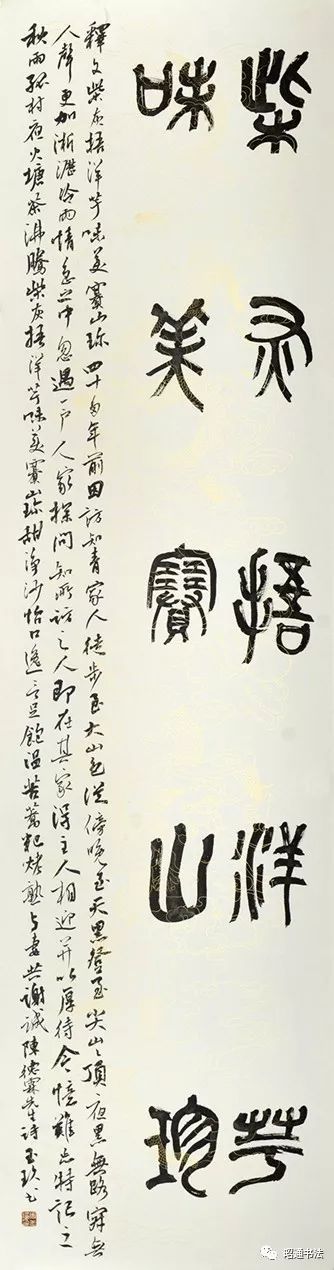 柴灰捂洋芋
味美賽山珍
釋文柴灰捂洋芋味美賽山珍四十多年前因訪知青家人徒步至大山包從傍晚至天黑登至尖山之頂夜黑無路寂無
人聲更加淅瀝冷雨情急之中忽遇一户人家探问知所訪之人即在其家得主人相迎并以厚待今憶難忘特記之
秋雨孤村夜火塘茶沸騰柴灰捂洋芋味美賽山珍甜净沙怡口足飽温苦蕎粑烤熟与妻共謝誠陳德霖先生詩玉玖书
昭通书法